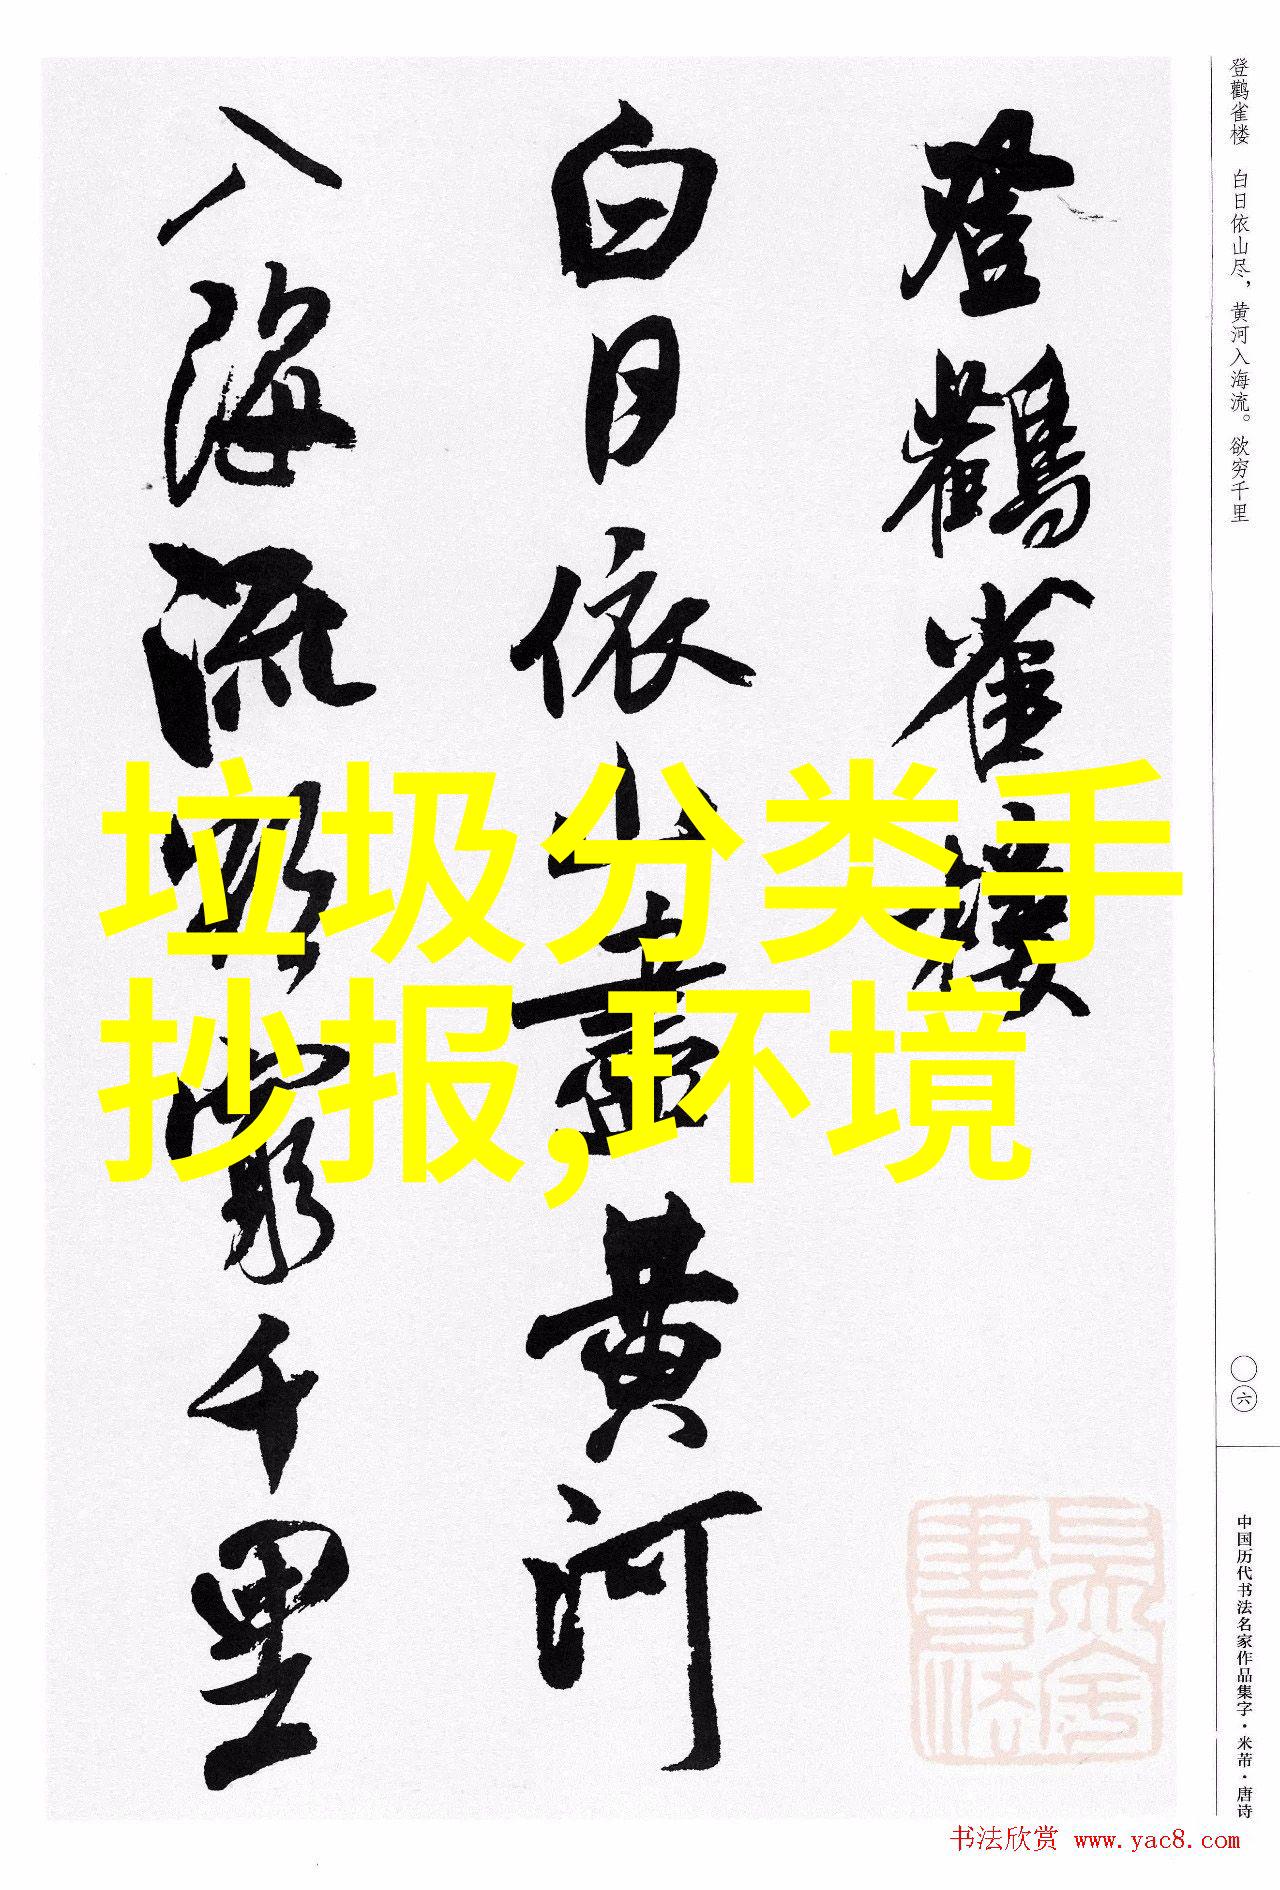 登鹳雀楼 白日依山尽，黄河入海流。欲穷千里
登鸛雀樓
白日依山盡黄河
入海流欲窮千里
垃圾分类手
抄报,环境
六
中国历代书法名家作品集字·米芾·唐诗
书法欣赏 www.yac8.com